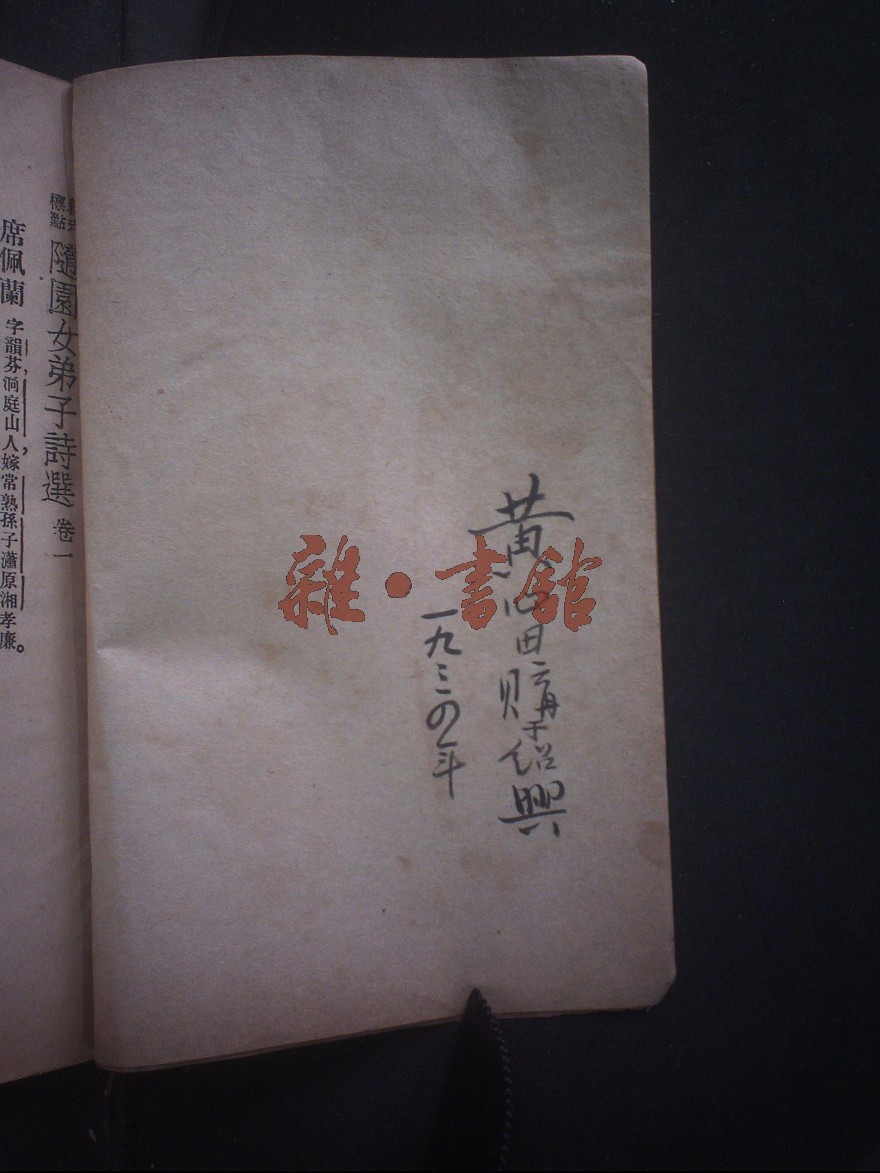 黄 購于紹興
一九三四年
雜·書館
標點 隨園女弟子詩選 卷一
席佩蘭 字韻芬,洞庭山人,嫁常熟孫子瀟原湘孝廉。